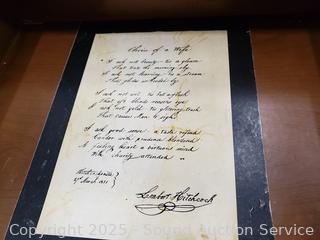 Choice of a Wife
"I ask not beauty - tis a gleam
That tints the morning sky
I ask not learning - tis a stream
That glides unheeded by
I ask not wit - tis but a flash
That oft blinds reason's eye
I ask not gold - tis glittering trash
That causes Men to sigh
I ask good sense - a taste refined
Candor with prudence blended
A feeling heart a virtuous mind
With charity attended "
March 1831
Hitchcock
Copyright © 2025 - Sound Auction Service